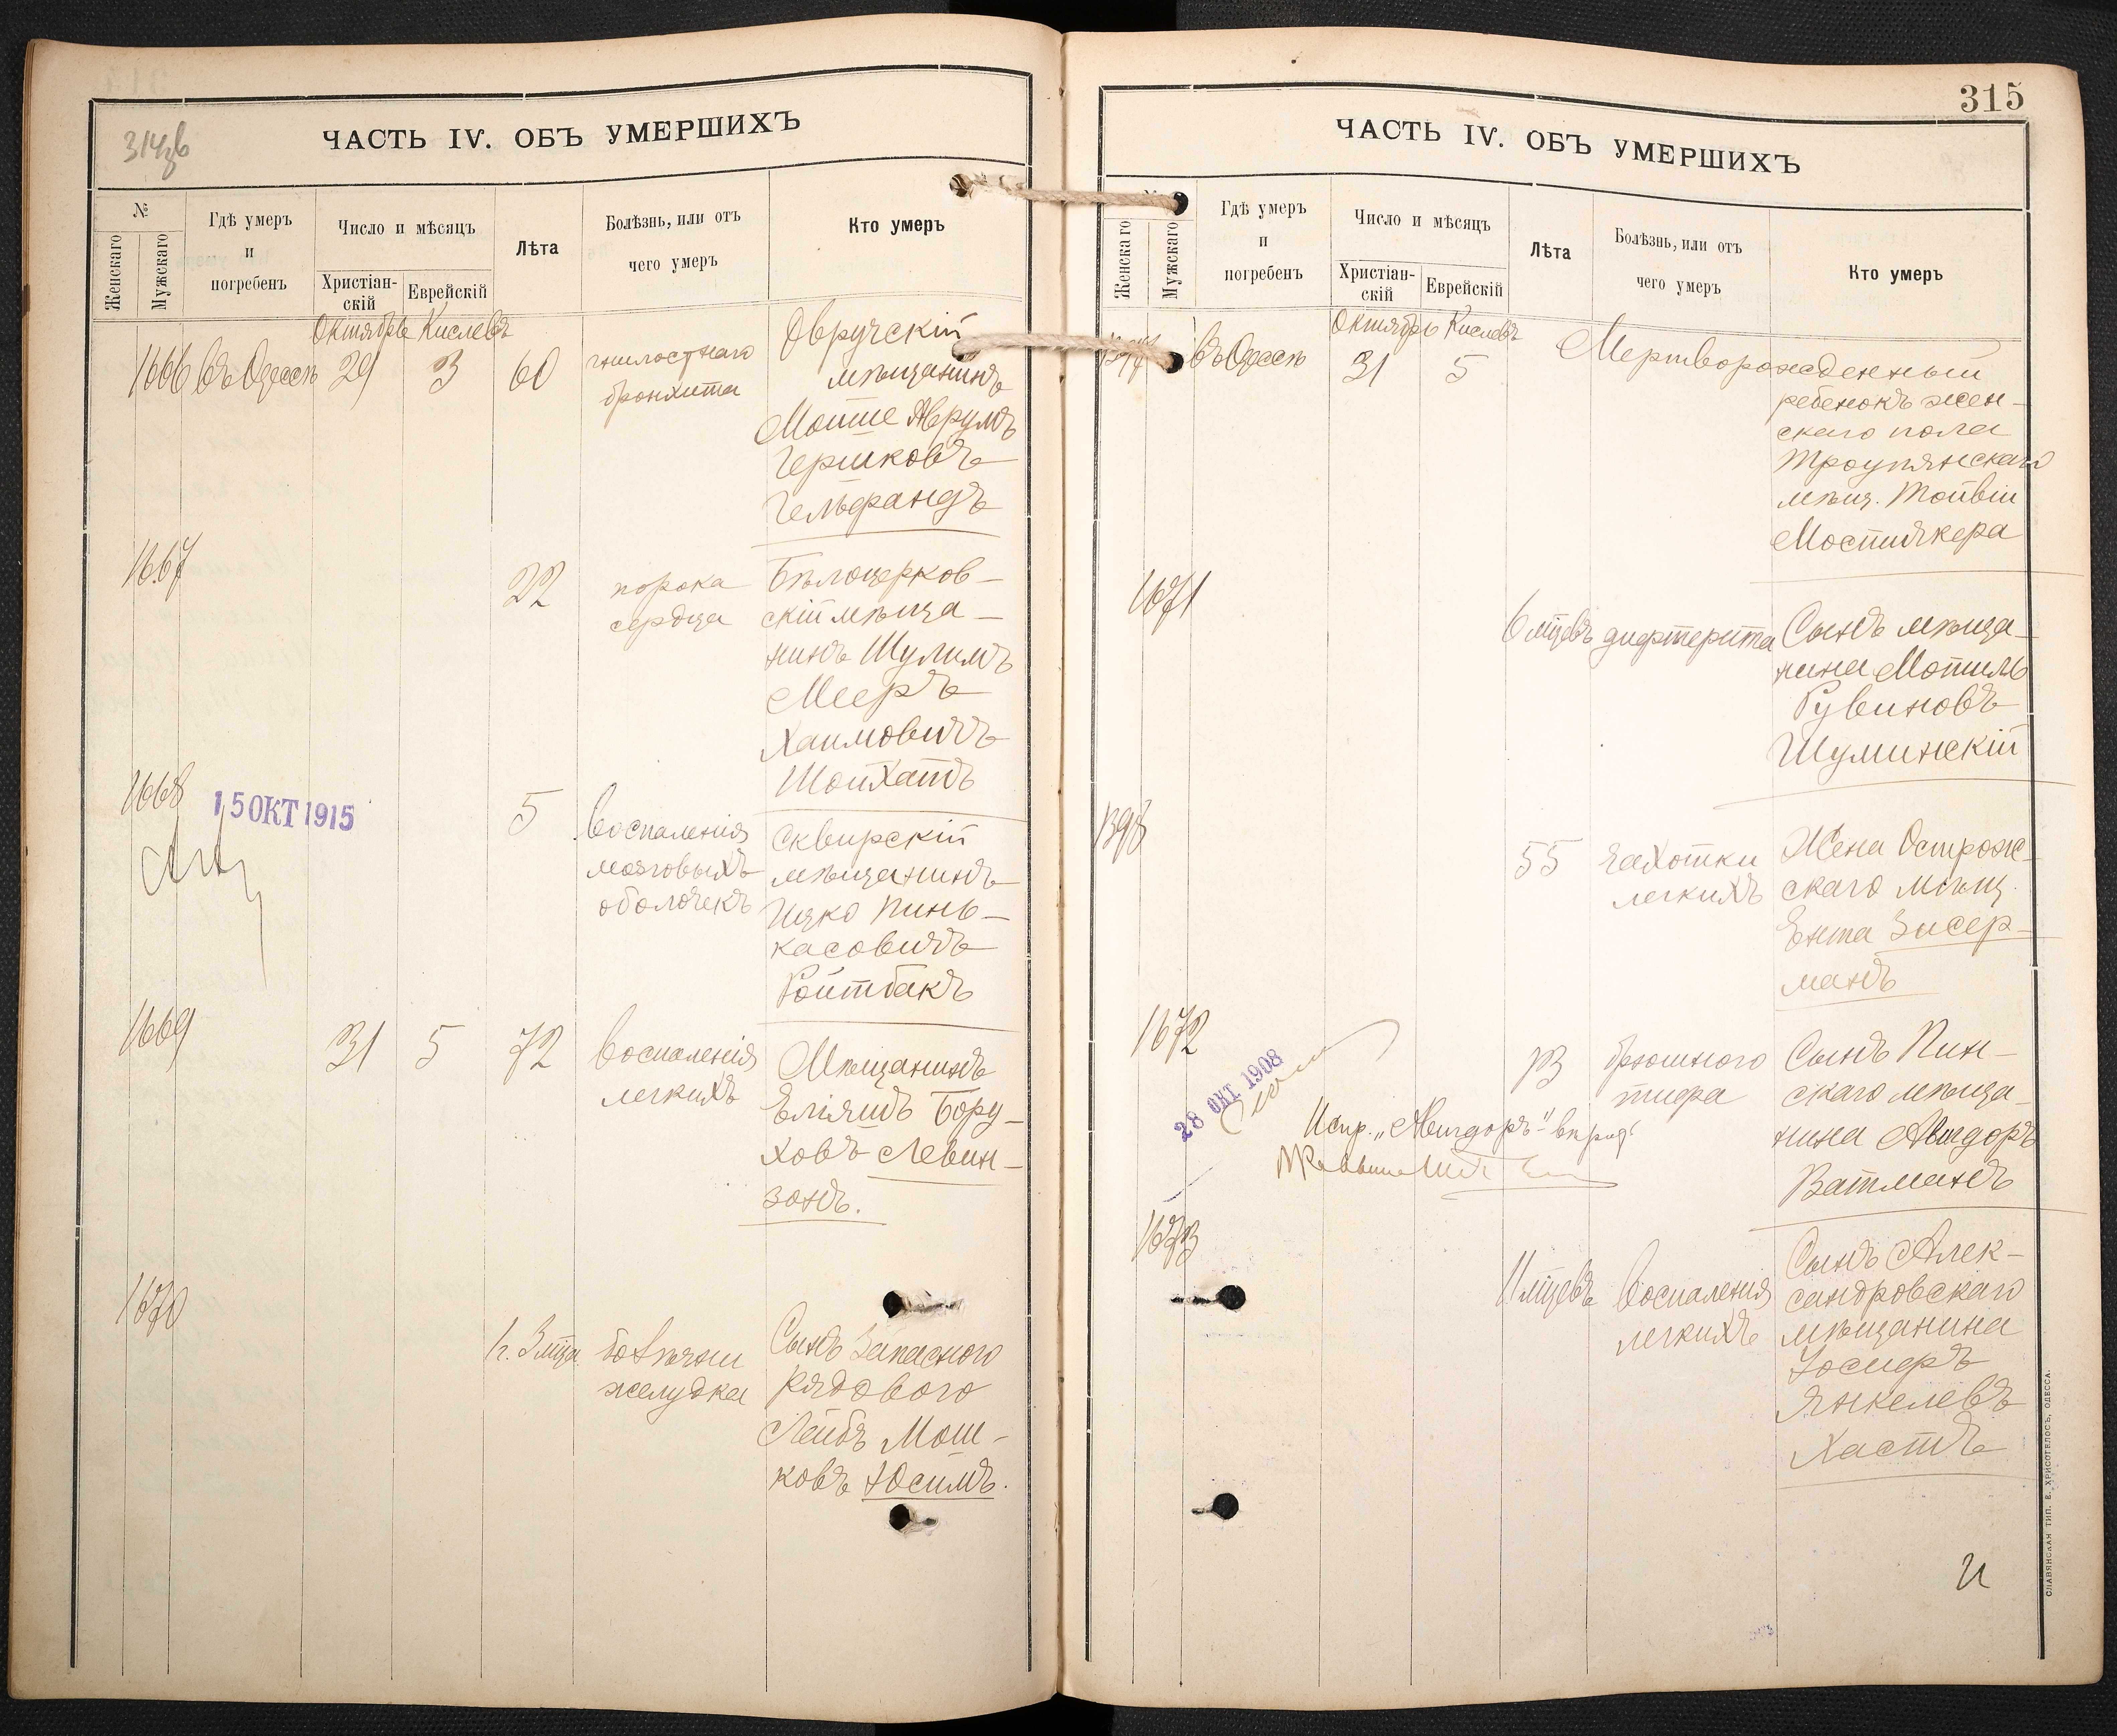 314 об
ЧАСТЬ IV. ОБЪ УМЕРШИХЪ
№
Женскаго
Мужскаго
Гдѣ умеръ
и
погребенъ
Число и мѣсяцъ
Христіан-
скій
Еврейскій
Лѣта
Болѣзнь, или отъ
чего умеръ
Кто умеръ
Октябрь Кислевъ
1666 въ Одессѣ 29 3 60
гнилостнаго
бронхита
Овручскій
мѣщанинъ
Мошше Аврумъ
Гершковъ
Гельфандъ
1667
22
порока
сердца
Бѣлоцерков-
скій мѣща-
нинъ Шулимъ
Мееръ
Хаимовичъ
Шойхатъ
1668
15 ОКТ 1915
5
воспаленія
мозговыхъ
оболочекъ
Сквирскій
мѣщанинъ
Ицко Пинь-
касовичъ
Ройтбакъ
1669
31 5 72
воспаленія
легкихъ
Мѣщанинъ
Еліяшъ Бору-
ховъ Левин-
зонъ.
1670
1 г. 3 мца
желудка
Сынъ запаснаго
рядового
Лейбъ Мош-
ковъ Юсимъ.
315
ЧАСТЬ IV. ОБЪ УМЕРШИХЪ
Женскаго
Мужскаго
Гдѣ умеръ
и
погребенъ
Число и мѣсяцъ
Христіан-
скій
Еврейскій
Лѣта
Болѣзнь, или отъ
чего умеръ
Кто умеръ
Октябрь Кислевъ
въ Одессѣ 31 5
Мертворожденный
ребенокъ жен-
скаго пола
Троупянскаго
мѣщ. Тойвіи
1671
6 мцевъ дифтерита
Сынъ мѣща-
нина Мотиль
Рувиновъ
Шуминскій
1398
55
чахотки
легкихъ
Жена Острож-
скаго мѣщ.
Ента Зисер-
манъ
1672
28 ОКТ. 1908
13
брюшного
тифа
Сынъ Пин-
скаго мѣща-
нина Авигдоръ
Ватманъ
Испр. „Авигдоръ“ вѣрно:
1673
11 мцевъ
воспаленія
легкихъ
Сынъ Алек-
сандровскаго
мѣщанина
Іосифъ
Янкелевъ
Хастъ
СЛАВЯНСКАЯ ТИП. Е. ХРИСОГЕЛОСЪ, ОДЕССА.